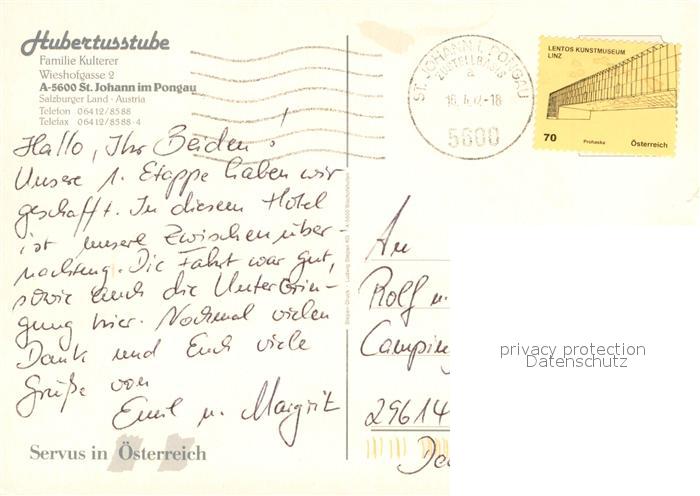 Hubertusstube
Familie Kulterer
Wieshofgasse 2
A-5600 St. Johann im Pongau
Salzburger Land · Austria
Telefon 06412/8588
Telefax 06412/8588-4
Hallo, Ihr Beiden!
Unsere 1. Etappe haben wir
geschafft. In diesem Hotel
ist unsere Zwischenüber
nachtung. Die Fahrt war gut,
sowie auch die Unterbrin-
gung hier. Nochmal vielen
Dank und Euch viele
Grüße von
Emil u. Margrit
Servus in Österreich
ST. JOHANN I. PONGAU
ZUSTELLBASIS
a
-18
5600
LENTOS KUNSTMUSEUM
LINZ
70
Prohaska
Österreich
An
Rolf u.
Camping
29614
privacy protection
Datenschutz